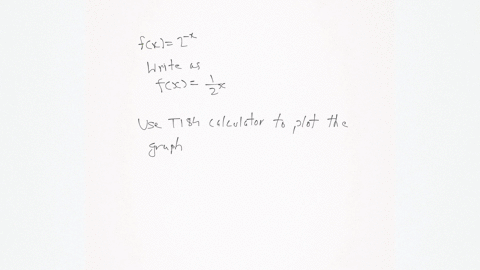 f(x) = 2^-x
Write as
f(x) = 1/2x
Use TI84 calculator to plot the
graph